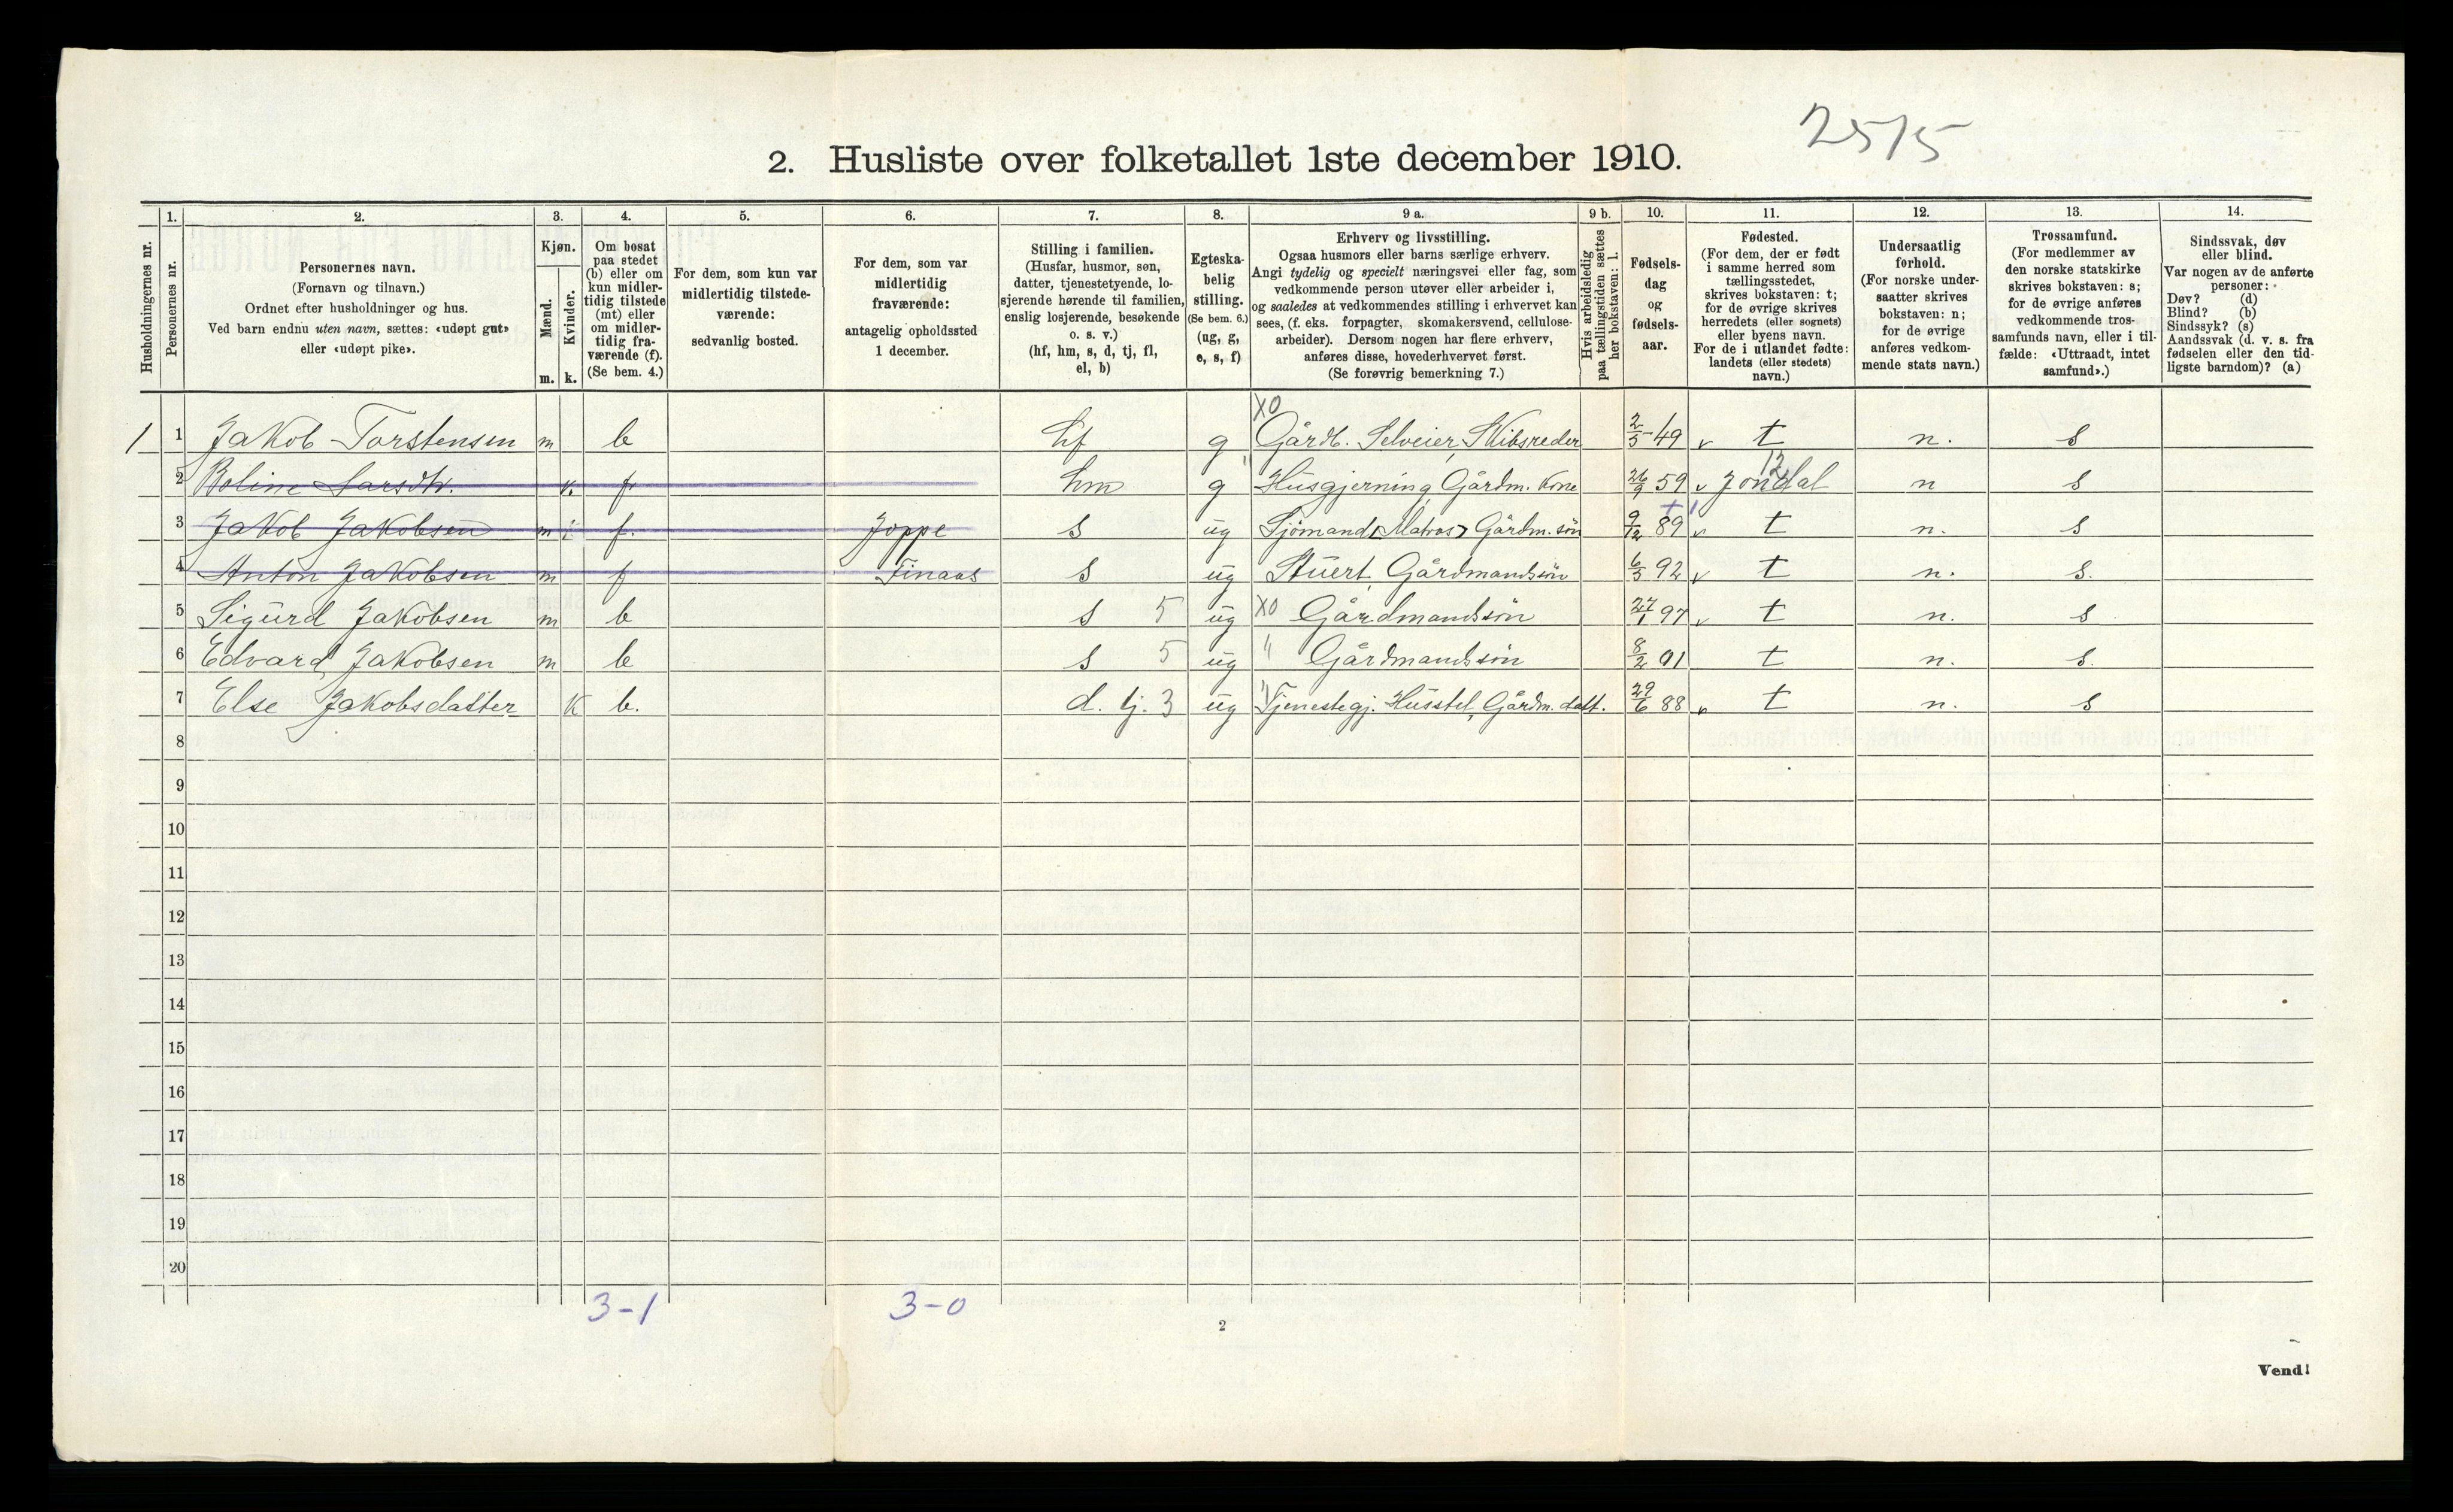 2515
2. Husliste over folketallet 1ste december 1910.
Husholdningernes nr.
1.
Personernes nr.
2.
Personernes navn.
(Fornavn og tilnavn.)
Ordnet efter husholdninger og hus.
Ved barn endnu uten navn, sættes: «udøpt gut»
eller «udøpt pike».
3.
Kjøn.
Mænd.
Kvinder.
m. k.
4.
Om bosat
paa stedet
(b) eller om
kun midler-
tidig tilstede
(mt) eller
om midler-
tidig fra-
værende (f).
(Se bem. 4.)
5.
For dem, som kun var
midlertidig tilstede-
værende:
sedvanlig bosted.
6.
For dem, som var
midlertidig
fraværende:
antagelig opholdssted
1 december.
7.
Stilling i familien.
(Husfar, husmor, søn,
datter, tjenestetyende, lo-
sjerende hørende til familien,
enslig losjerende, besøkende
o. s. v.)
(hf, hm, s, d, tj, fl,
el, b)
8.
Egteska-
belig
stilling.
(Se bem. 6.)
(ug, g,
e, s, f)
9 a.
Erhverv og livsstilling.
Ogsaa husmors eller barns særlige erhverv.
Angi tydelig og specielt næringsvei eller fag, som
vedkommende person utøver eller arbeider i,
og saaledes at vedkommendes stilling i erhvervet kan
sees, (f. eks. forpagter, skomakersvend, cellulose-
arbeider). Dersom nogen har flere erhverv,
anføres disse, hovederhvervet først.
(Se forøvrig bemerkning 7.)
9 b.
Hvis arbeidsledig
paa tællingstiden sættes
her bokstaven: l.
10.
Fødsels-
dag
og
fødsels-
aar.
11.
Fødested.
(For dem, der er født
i samme herred som
tællingsstedet,
skrives bokstaven: t;
for de øvrige skrives
herredets (eller sognets)
eller byens navn.
For de i utlandet fødte:
landets (eller stedets)
navn.)
12.
Undersaatlig
forhold.
(For norske under-
saatter skrives
bokstaven: n;
for de øvrige
anføres vedkom-
mende stats navn.)
13.
Trossamfund.
(For medlemmer av
den norske statskirke
skrives bokstaven: s;
for de øvrige anføres
vedkommende tros-
samfunds navn, eller i til-
fælde: «Uttraadt, intet
samfund».)
14.
Sindssvak, døv
eller blind.
Var nogen av de anførte
personer:
Døv? (d)
Blind? (b)
Sindssyk? (s)
Aandssvak (d. v. s. fra
fødselen eller den tid-
ligste barndom)? (a)
X0
1 1 Jakob Torstensen m b hf g Gårdb. Selveier, Skibsreder 2/5-49 v t n. s
12
2 Boline Larsdtr. k. f hm g " Husgjerning, Gårdm. Kone 26/9 59 v Jondal n s
3 Jakob Jakobsen m f. Joppe s ug Sjömand (Matros) Gårdm. sön 9/12 89 v t n. s
4 Anton Jakobsen m f Finaas s ug Stuert, Gårdmandsön 6/5 92 v t n. s.
5 Sigurd Jakobsen m b s 5 ug X0 Gårdmandsön 27/1 97 v t n. s
6 Edvard Jakobsen m b s 5 ug " Gårdmandsön 8/2 01 t n. s.
7 Else Jakobsdatter k b. d. tj. 3 ug " Tjenestegj. Husstel, Gårdm. datt. 29/6 88 v t n. s
8
9
10
11
12
13
14
15
16
17
18
19
20
3-1 3-0
2
Vend!